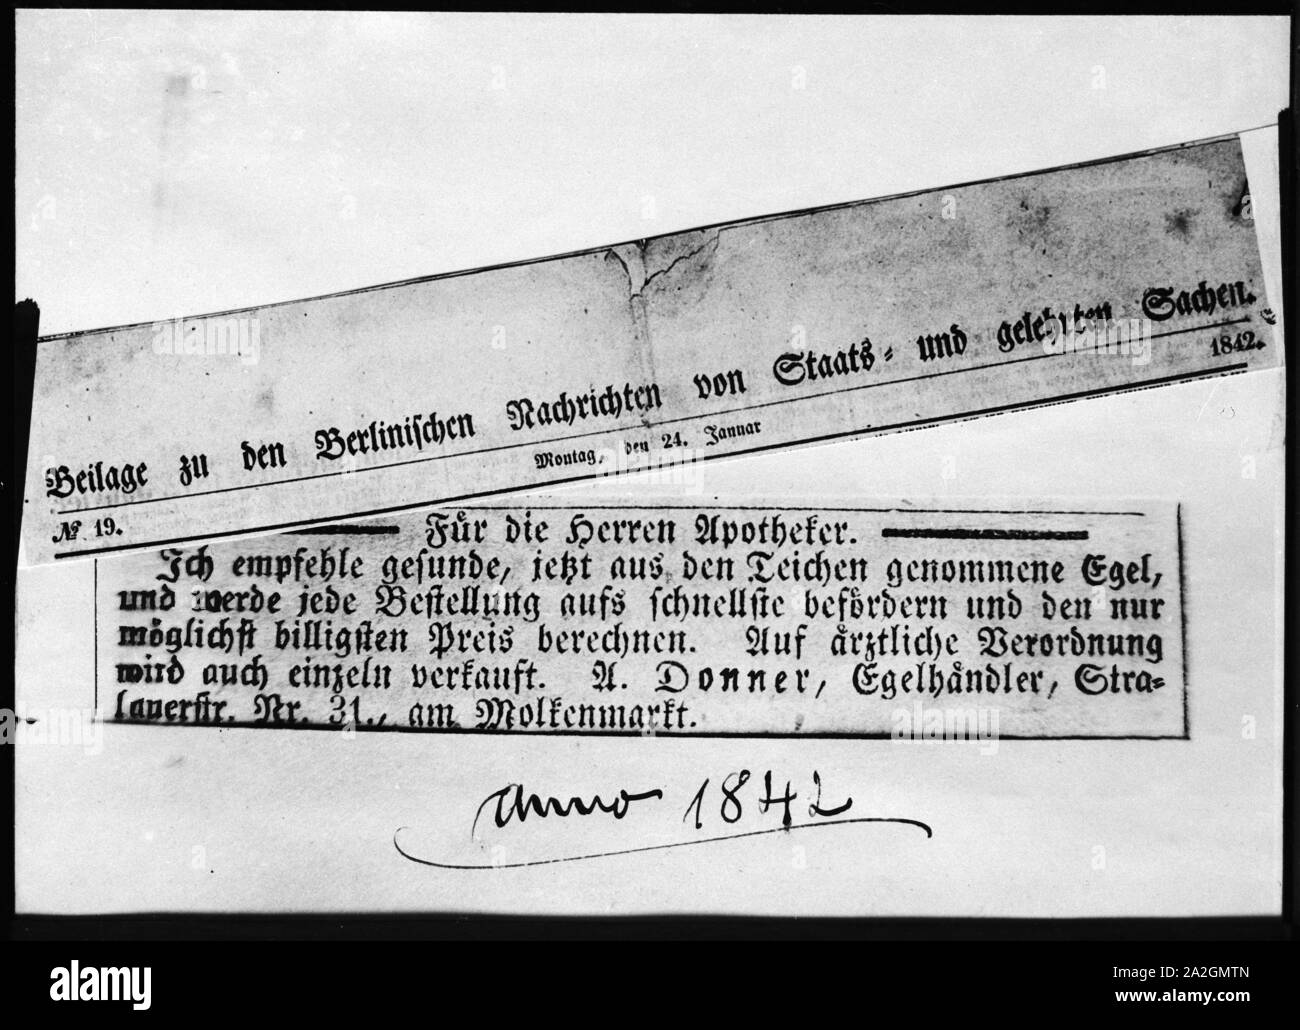 Beilage zu den Berlinischen Nachrichten von Staats- und gelehrten Sachen.
№ 19. Montag, den 24. Januar 1842.
Fůr die Herren Apotheker.
Ich empfehle gesunde, jetzt aus den Teichen genommene Egel,
und werde jede Bestellung aufs schnellste befördern und den nur
möglichst billigsten Preis berechnen. Auf ärztliche Verordnung
wird auch einzeln verkauft. A. Donner, Egelhåndler, Stra-
lauerstr. Nr. 31., am Molkenmarkt.
anno 1842
alamy
Image ID: 2A2GMTN
www.alamy.com